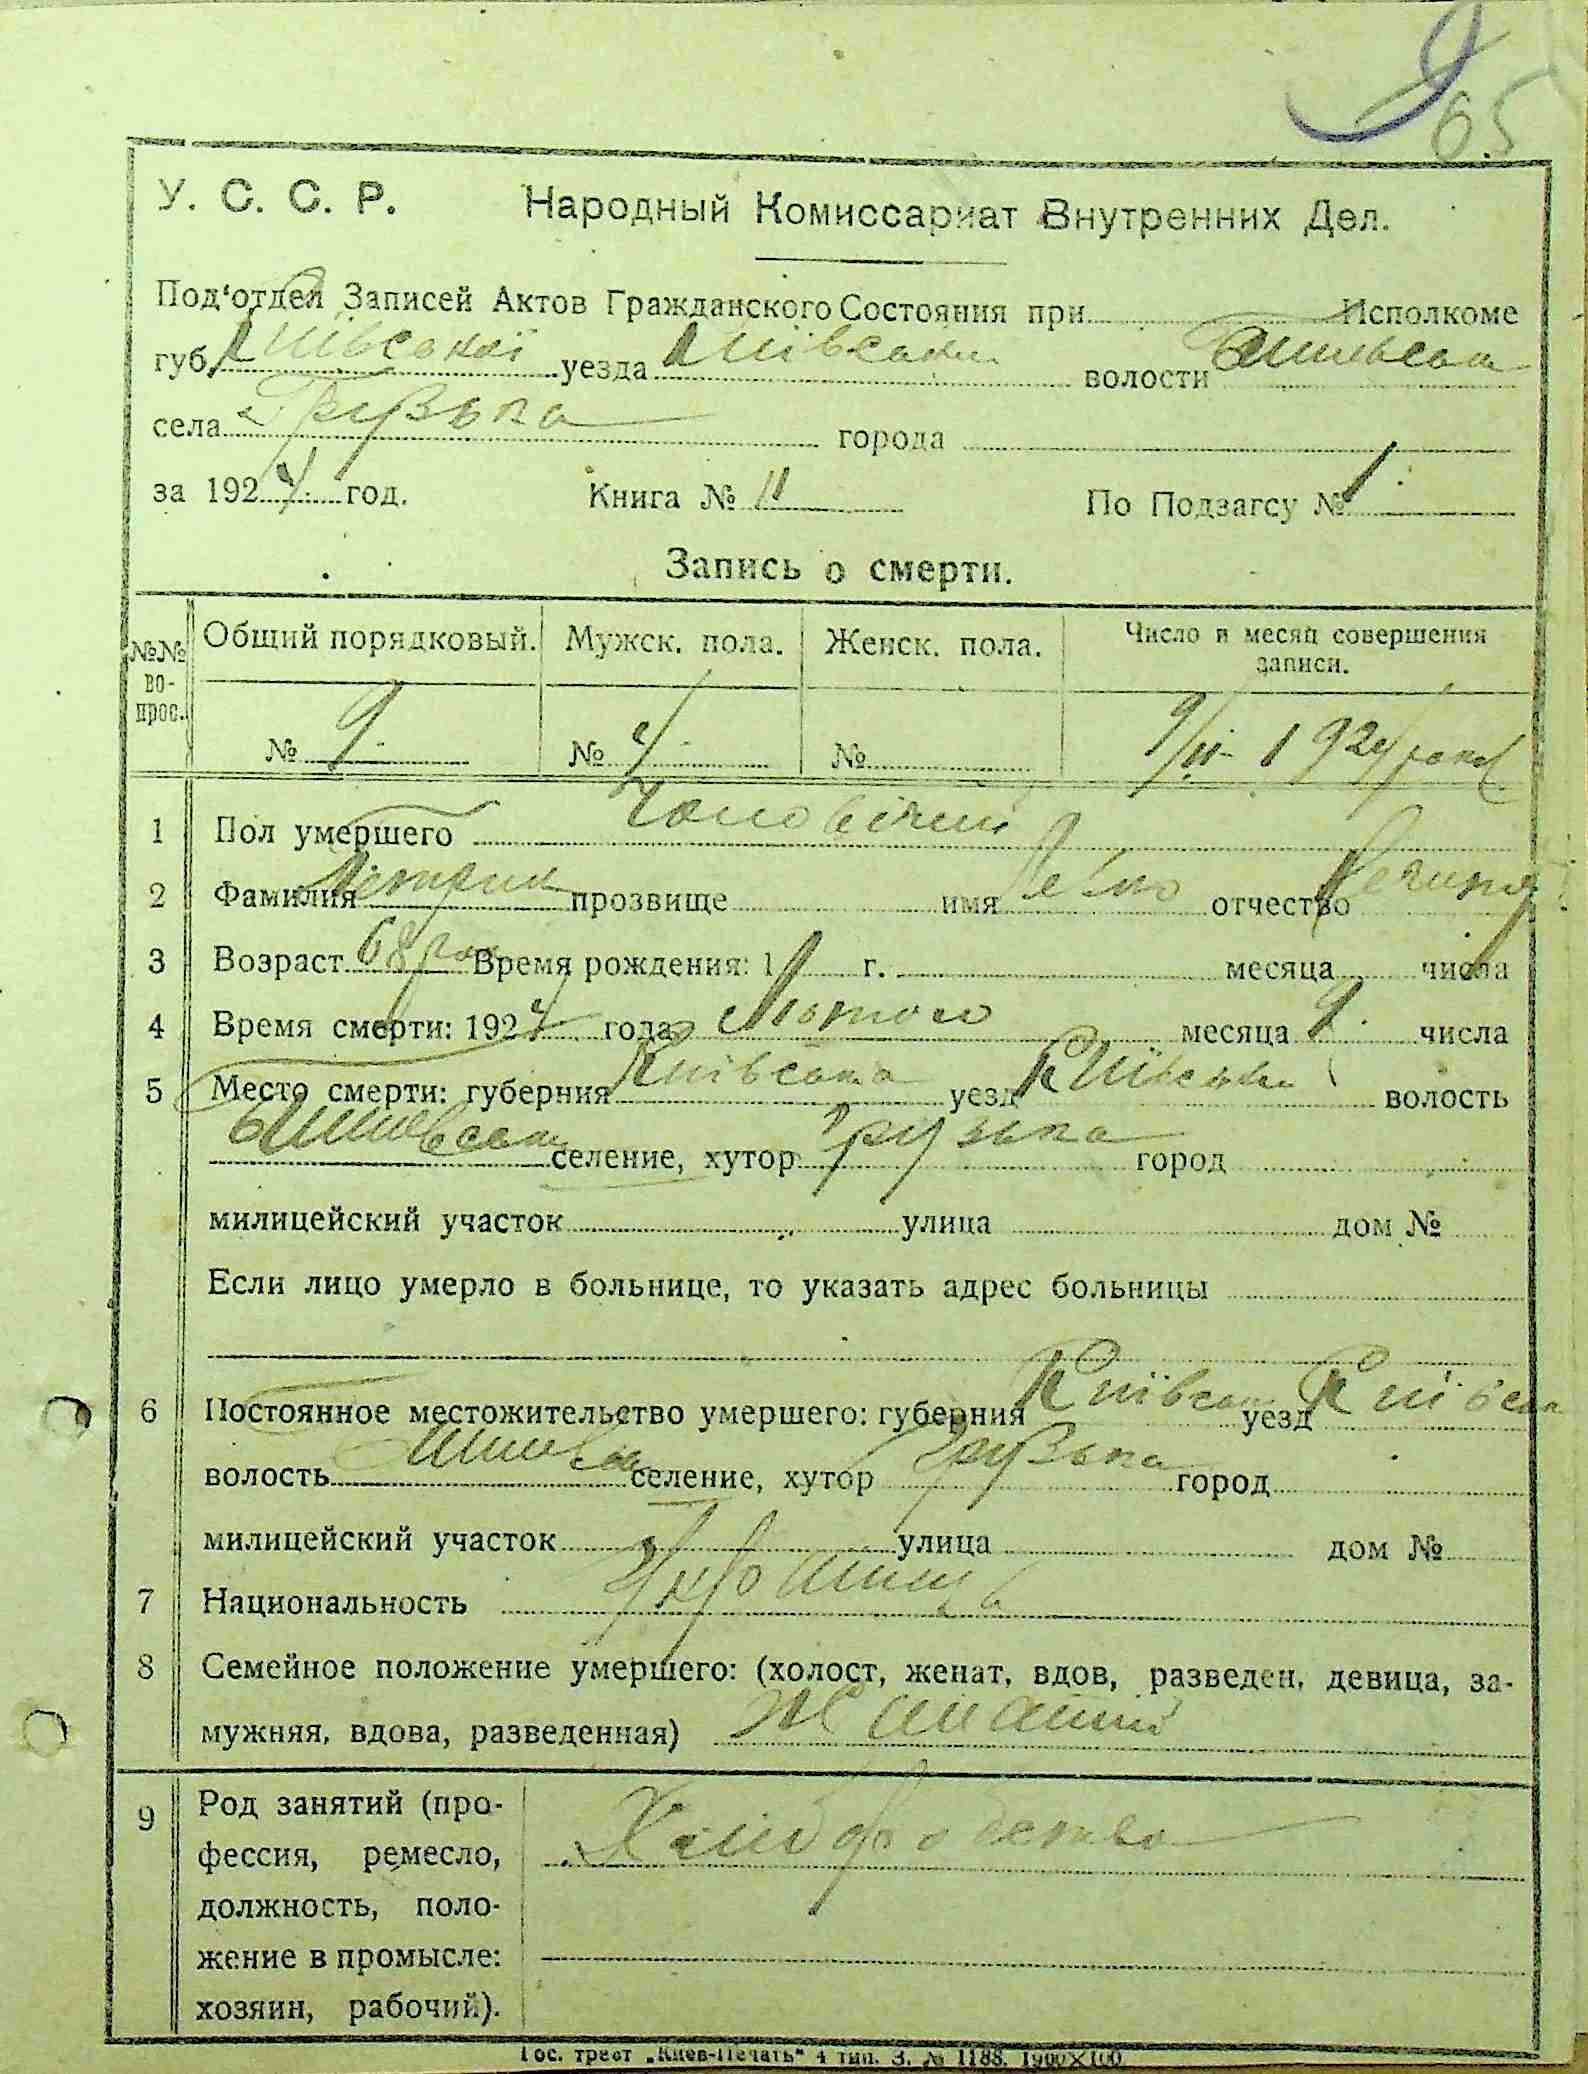 65
У. С. С. Р. Народный Комиссариат Внутренних Дел.
Под'отдел Записей Актов Гражданского Состояния при Исполкоме
губ. Київської уезда Київська волости
села Грузька города
за 1924 год. Книга № II По Подзагсу № 1
Запись о смерти.
№№ вопрос. Общий порядковый. Мужск. пола. Женск. пола. Число и месяц совершения записи.
№ 9 № 4 № 9/III 1924 року
1 Пол умершего Чоловічий
2 Фамилия Петрик прозвище имя отчество
3 Возраст 68 рок Время рождения: 1 г. месяца числа
4 Время смерти: 1924 года Лютого месяца 9 числа
5 Место смерти: губерния Київська уезд Київська волость
селение, хутор Грузька город
милицейский участок улица дом №
Если лицо умерло в больнице, то указать адрес больницы
6 Постоянное местожительство умершего: губерния Київська уезд Київськ
волость селение, хутор Грузька город
милицейский участок улица дом №
7 Национальность Українець
8 Семейное положение умершего: (холост, женат, вдов, разведен, девица, за-
мужняя, вдова, разведенная) Жонатий
9 Род занятий (про-
фессия, ремесло, Хліборобство
должность, поло-
жение в промысле:
хозяин, рабочий).
Гос. трест „Киев-Печать" 4 тип. З. № 1188. 1900×100